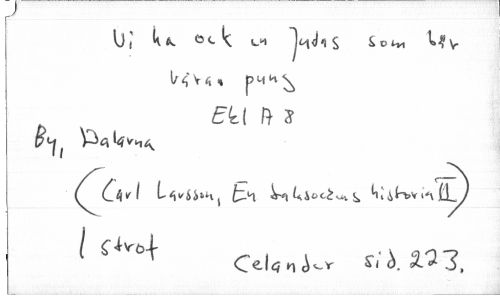 Vi ha ock en Judas som bär
våran pung
Ekl A 8
By, Dalarna
(Carl Larsson, En dalsockens historia II)
1 strof
Celander sid. 223.